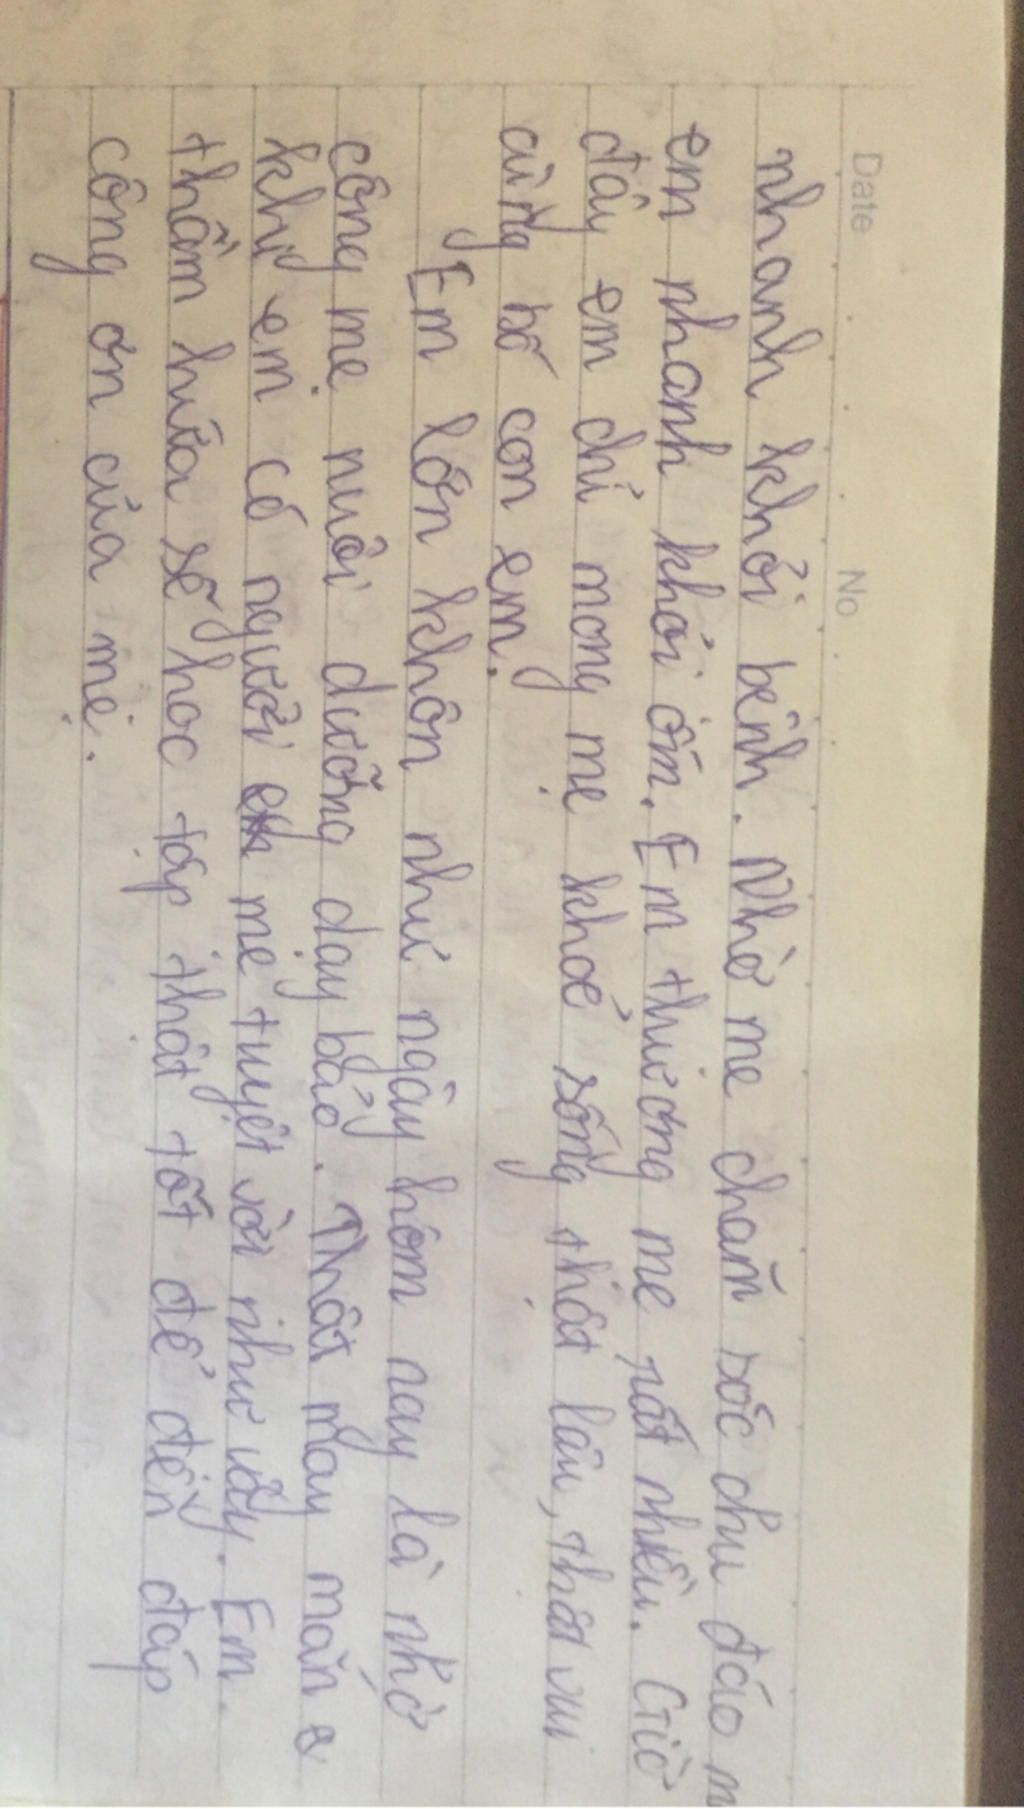 Date No
nhanh khỏi bệnh. Nhờ mẹ chăm sóc chu đáo m
em nhanh khỏi ốm. Em thương mẹ rất nhiều. Giờ
đây em chỉ mong mẹ khoẻ sống thật lâu, thật vui
cùng bố con em.
Em lớn khôn như ngày hôm nay là nhờ
công mẹ nuôi dưỡng dạy bảo. Thật may mắn
khi em có người mẹ tuyệt vời như vậy. Em
thầm hứa sẽ học tập thật tốt để đền đáp
công ơn của mẹ.